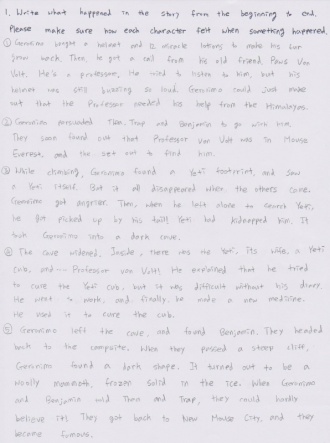 1. Write what happened in the story from the beginning to end.
Please make sure how each character felt when something happened.
① Geronimo bought a helmet and 12 miracle lotions to make his fur
grow back. Then, he got a call from his old friend, Paws Von
Volt. He's a professor. He tried to listen to him, but his
helmet was still buzzing so loud. Geronimo could just make
out that the Professor needed his help from the Himalayas.
② Geronimo persuaded Thea, Trap and Benjamin to go with him.
They soon found out that Professor von Volt was in Mouse
Everest, and the set out to find him.
③ While climbing, Geronimo found a Yeti footprint, and saw
a Yeti itself. But it all disappeared when the others came.
Geronimo got angrier. Then, when he left alone to search Yeti,
he got picked up by his tail! Yeti had kidnapped him. It
took Geronimo into a dark cave.
④ The cave widened. Inside, there was the Yeti, its wife, a Yeti
cub, and --- Professor von Volt! He explained that he tried
to cure the Yeti cub, but it was difficult without his diary.
He went to work, and, finally, he made a new medicine.
He used it to cure the cub.
⑤ Geronimo left the cave, and found Benjamin. They headed
back to the campsite. When they passed a steep cliff,
Geronimo found a dark shape. It turned out to be a
woolly mammoth, frozen solid in the ice. When Geronimo
and Benjamin told Thea and Trap, they could hardly
believe it! They got back to New Mouse City, and they
became famous.